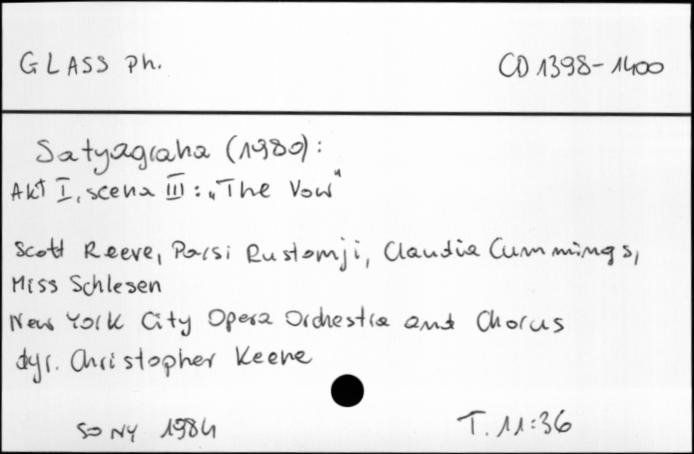 GLASS Ph.
CD 1398-1400
Satyagraha (1980):
Akt I, scena III: „The Vow"
Scott Reeve, Parsi Rustomji, Claudia Cummings,
Miss Schlesen
New York City Opera Orchestra and Chorus
dyr. Christopher Keene
SONY 1984
T. 11:36